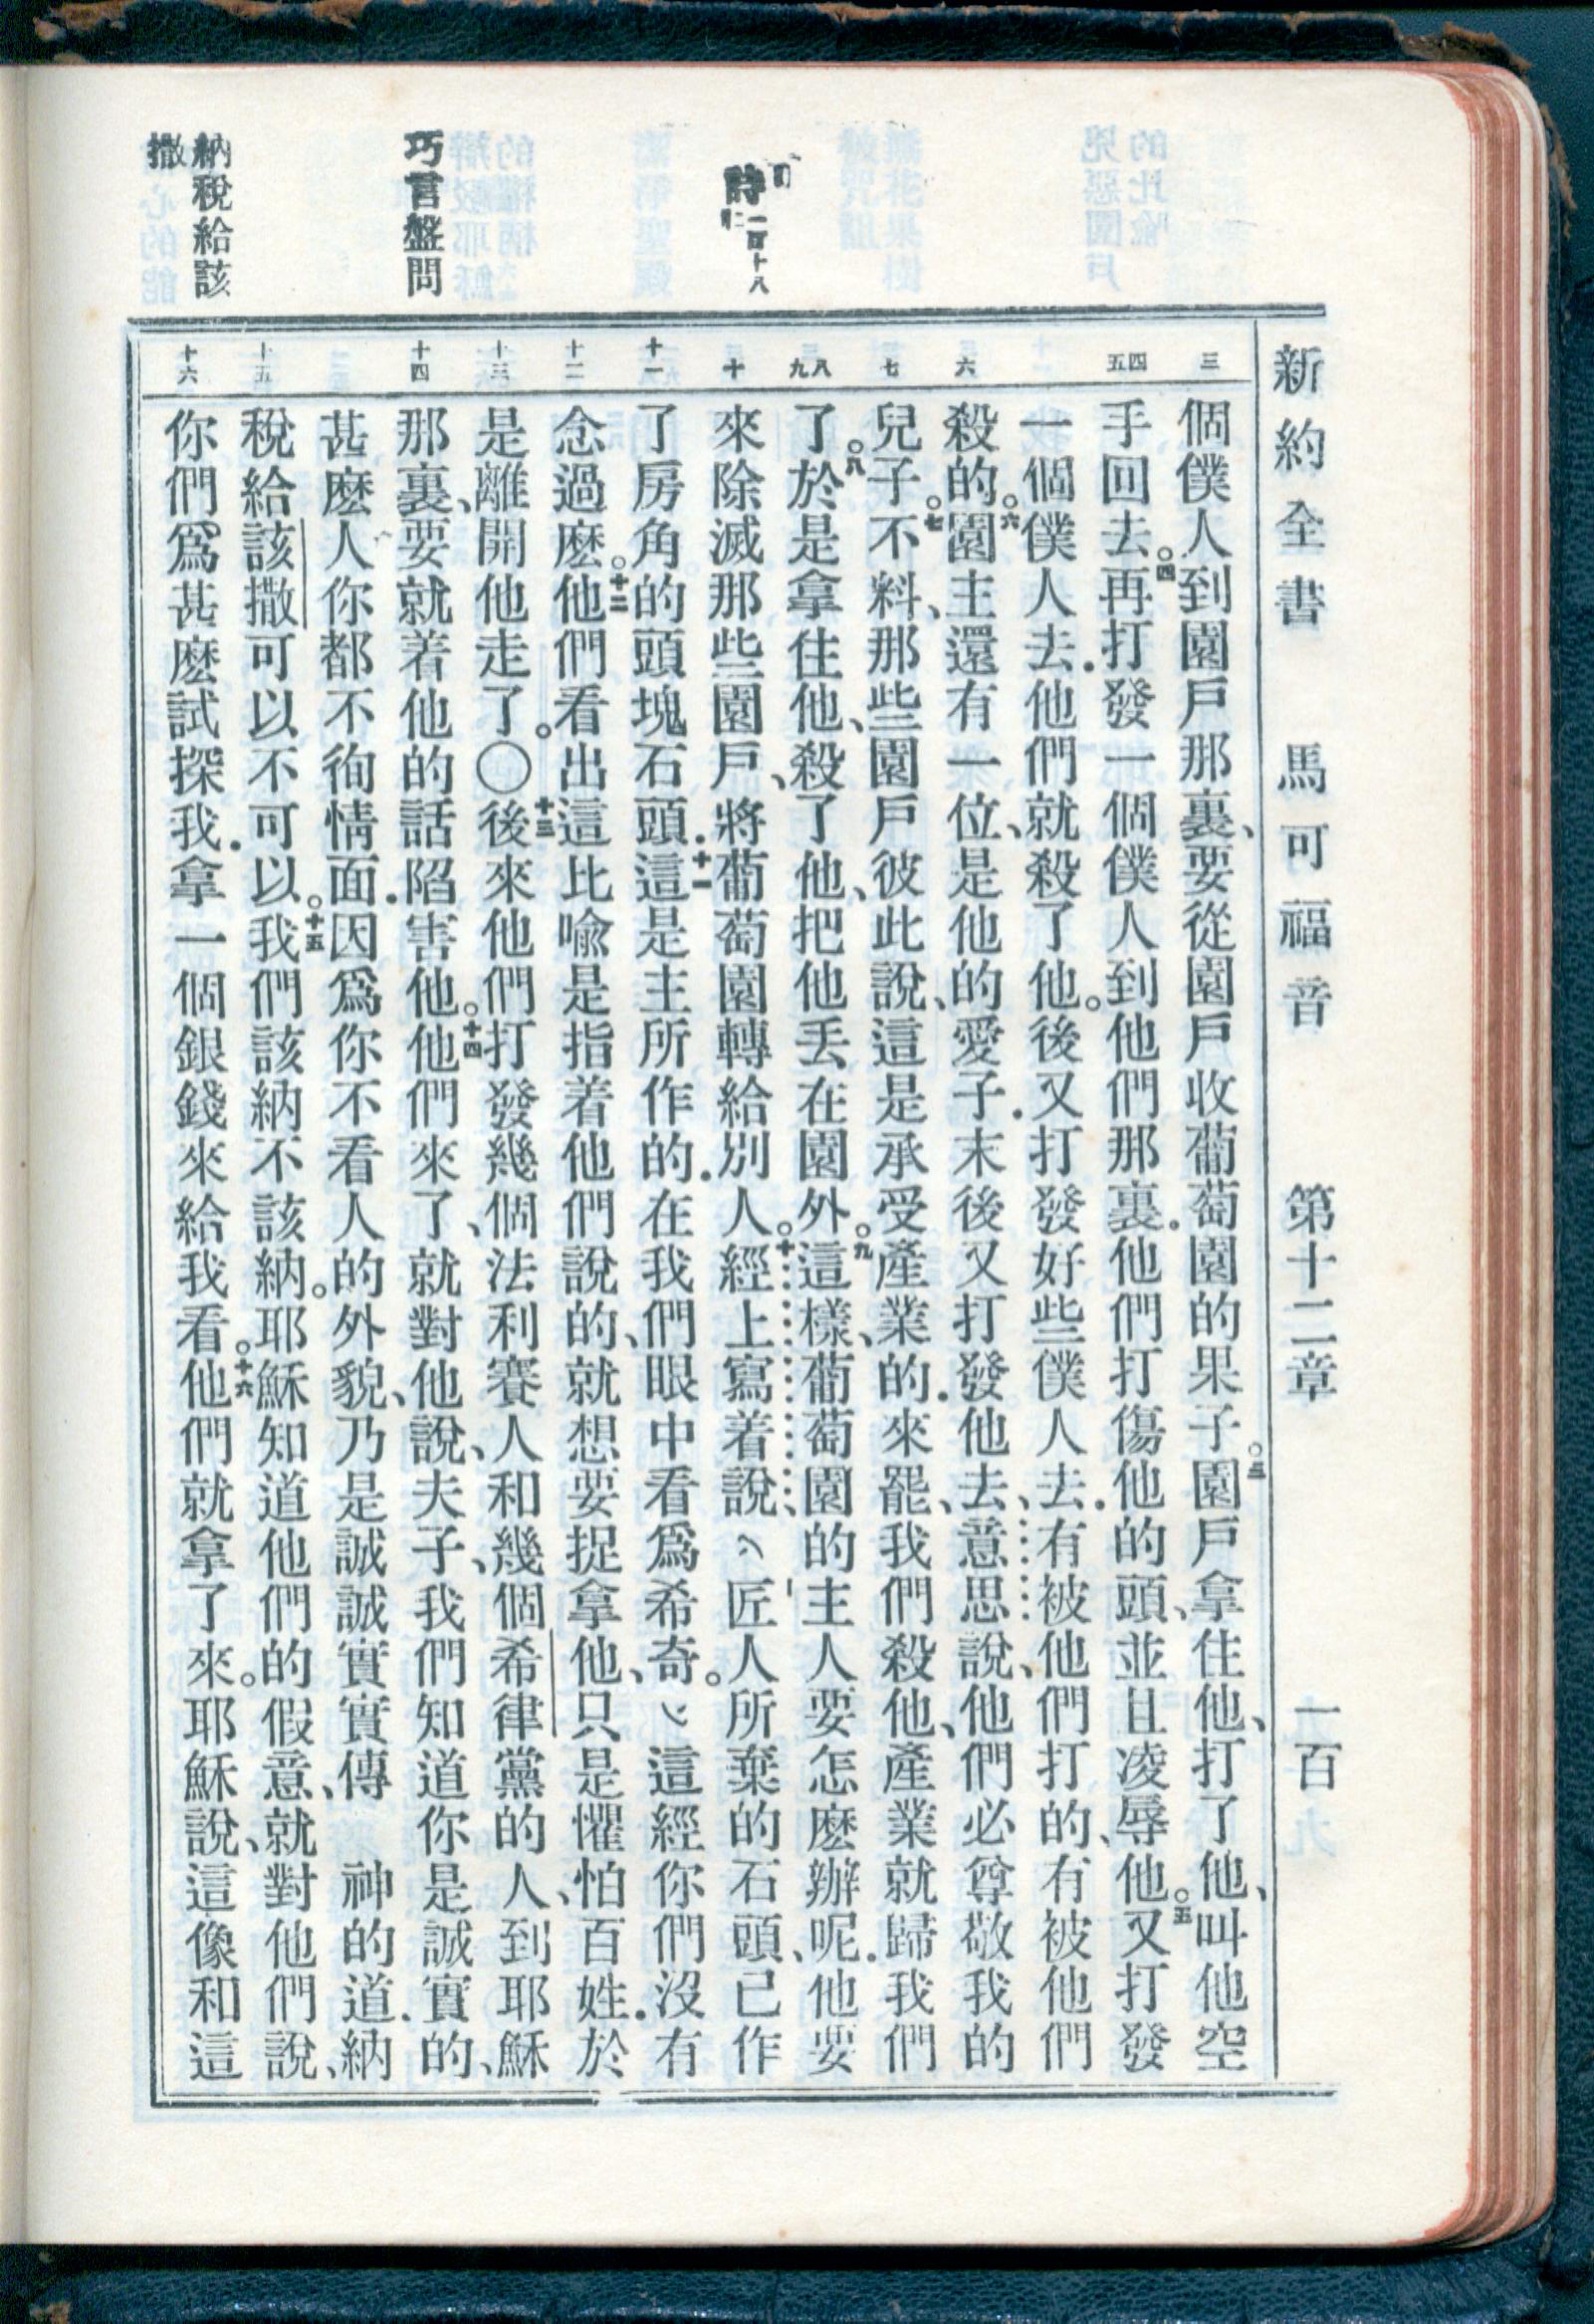 新約全書 馬可福音 第十二章 一百
三
四
五
六
七
八
九
十
十一
十二
十三
十四
十五
十六
詩
一百十八
巧言盤問
納稅給該
撒
個僕人到園戶那裏、要從園戶收葡萄園的果子。三園戶拿住他、打了他、叫他空
手回去。四再打發一個僕人到他們那裏.他們打傷他的頭、並且凌辱他。五又打發
一個僕人去.他們就殺了他。後又打發好些僕人去.有被他們打的、有被他們
殺的。六園主還有一位、是他的愛子.末後又打發他去、意思說、他們必尊敬我的
兒子。七不料、那些園戶彼此說、這是承受產業的.來罷、我們殺他、產業就歸我們
了。八於是拿住他、殺了他、把他丟在園外。九這樣、葡萄園的主人要怎麽辦呢.他要
來除滅那些園戶、將葡萄園轉給別人。十經上寫着說、匠人所棄的石頭、已作
了房角的頭塊石頭.十一這是主所作的.在我們眼中看爲希奇。這經你們沒有
念過麽。十二他們看出這比喩是指着他們說的、就想要捉拿他、只是懼怕百姓.於
是離開他走了。〇十三後來他們打發幾個法利賽人和幾個希律黨的人、到耶穌
那裏、要就着他的話陷害他。十四他們來了、就對他說、夫子、我們知道你是誠實的、
甚麽人你都不徇情面.因爲你不看人的外貌、乃是誠誠實實傳、神的道.納
稅給該撒可以不可以。十五我們該納不該納。耶穌知道他們的假意、就對他們說、
你們爲甚麽試探我.拿一個銀錢來給我看。十六他們就拿了來。耶穌說、這像和這